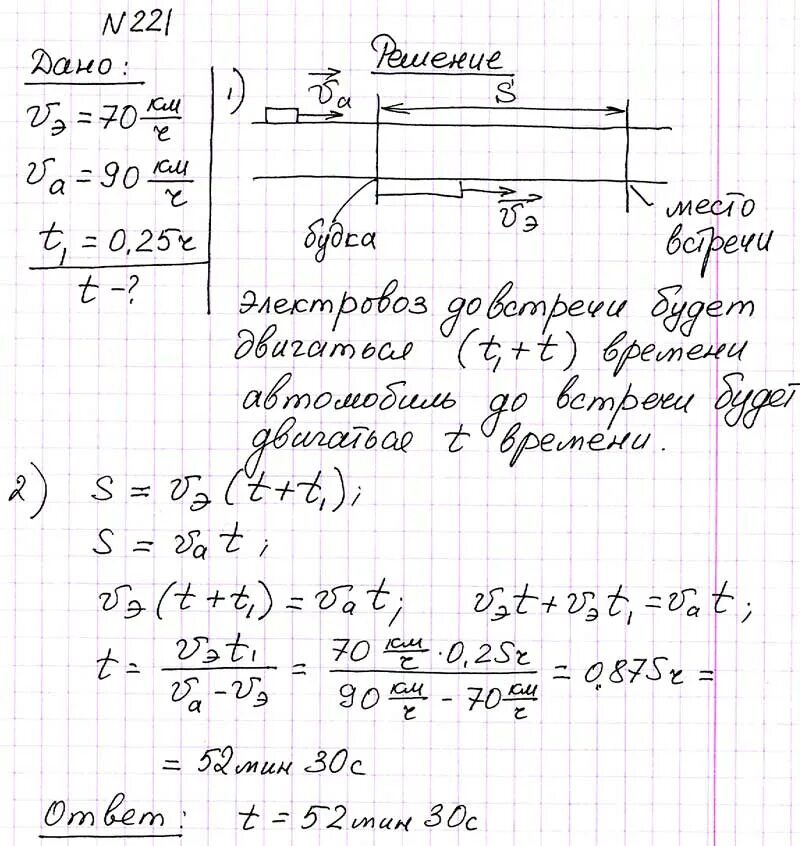 N 221
Дано:
vэ = 70 км/ч
vа = 90 км/ч
t₁ = 0,25ч
t – ?
Решение
1)
vа
S
vэ
будка
место
встречи
электровоз до встречи будет
двигаться (t₁ + t) времени
автомобиль до встречи будет
двигаться t времени.
2) S = vэ (t + t₁);
S = vа t;
vэ (t + t₁) = vа t; vэt + vэt₁ = vа t;
t = vэt₁ / (vа – vэ) = 70 км/ч · 0,25ч / (90 км/ч – 70 км/ч) = 0,875ч =
= 52мин 30с
Ответ: t = 52мин 30с